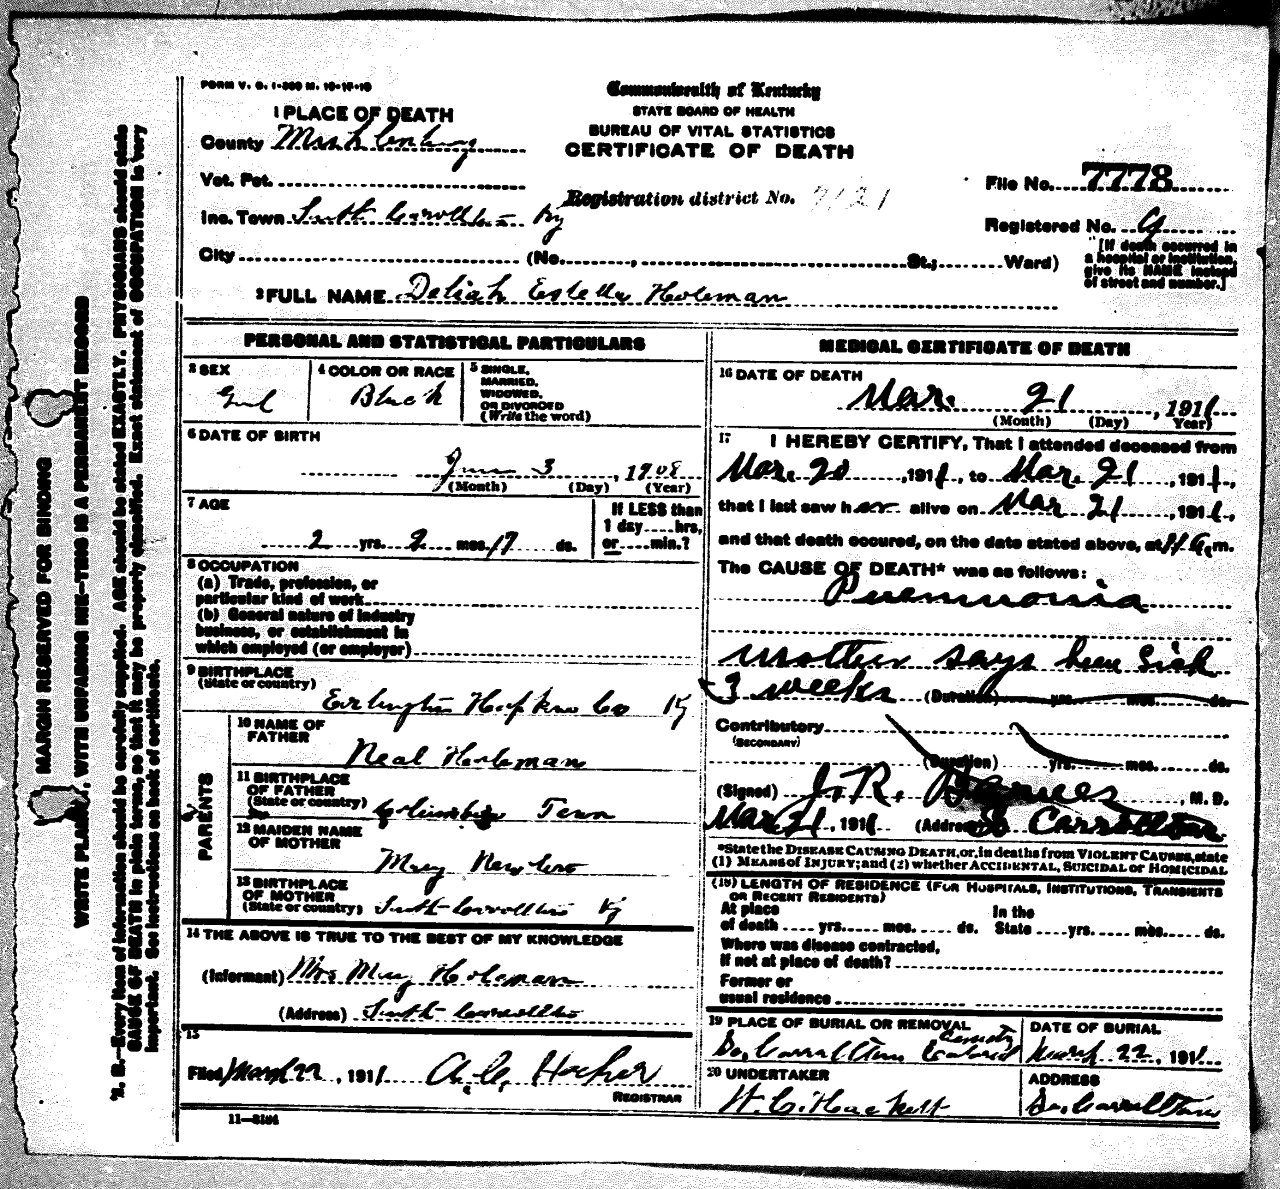 FORM V. S. 1-300 M. 10-17-10
Commonwealth of Kentucky
STATE BOARD OF HEALTH
BUREAU OF VITAL STATISTICS
CERTIFICATE OF DEATH
1 PLACE OF DEATH
County
Vot. Pct.
Inc. Town South Carrollton Ky
City (No. , St.; Ward)
Registration district No. 7121
File No. 7778
Registered No. 9
[If death occurred in
a hospital or institution,
give its NAME instead
of street and number.]
2 FULL NAME Deliah Estella Holeman
PERSONAL AND STATISTICAL PARTICULARS
3 SEX
4 COLOR OR RACE Black
5 SINGLE,
MARRIED,
WIDOWED,
OR DIVORCED
(Write the word)
6 DATE OF BIRTH
3, 1908
(Month) (Day) (Year)
7 AGE
2 yrs. 2 mos. 17 ds.
If LESS than
1 day hrs,
or min.?
8 OCCUPATION
(a) Trade, profession, or
particular kind of work
(b) General nature of industry
business, or establishment in
which employed (or employer)
9 BIRTHPLACE
(State or country)
Earlington Hopkins Co Ky
PARENTS
10 NAME OF
FATHER
Neal Holeman
11 BIRTHPLACE
OF FATHER
(State or country) Columbia Tenn
12 MAIDEN NAME
OF MOTHER
Mary
13 BIRTHPLACE
OF MOTHER
(State or country) South Carrollton Ky
14 THE ABOVE IS TRUE TO THE BEST OF MY KNOWLEDGE
(Informant) Mrs Mary Holeman
(Address) South Carrollton
15
Filed March 22, 1911 A. C. Hocker
REGISTRAR
11—3184
MEDICAL CERTIFICATE OF DEATH
16 DATE OF DEATH
Mar. 21, 1911
(Month) (Day) Year)
17 I HEREBY CERTIFY, That I attended deceased from
Mar. 20, 1911, to Mar. 21, 1911,
that I last saw her alive on Mar 21, 1911,
and that death occured, on the date stated above, at m.
The CAUSE OF DEATH* was as follows:
Pneumonia
Mother says been sick
3 weeks (Duration) yrs. mos. ds.
Contributory
(SECONDARY)
(Duration) yrs. mos. ds.
(Signed) J. R. , M. D.
Mar 21, 1911 (Address) So Carrollton
*State the DISEASE CAUSING DEATH, or, in deaths from VIOLENT CAUSES, state
(1) MEANS OF INJURY; and (2) whether ACCIDENTAL, SUICIDAL or HOMICIDAL
(18) LENGTH OF RESIDENCE (FOR HOSPITALS, INSTITUTIONS, TRANSIENTS
OR RECENT RESIDENTS)
At place In the
of death yrs. mos. ds. State yrs. mos. ds.
Where was disease contracted,
If not at place of death?
Former or
usual residence
19 PLACE OF BURIAL OR REMOVAL
So. Carrollton Colored Cemetery
DATE OF BURIAL
March 22, 1911
20 UNDERTAKER
ADDRESS
So. Carrollton
MARGIN RESERVED FOR BINDING
WRITE PLAINLY, WITH UNFADING INK—THIS IS A PERMANENT RECORD
N. B.—Every item of information should be carefully supplied. AGE should be stated EXACTLY. PHYSICIANS should state
CAUSE OF DEATH in plain terms, so that it may be properly classified. Exact statement of OCCUPATION is very
important. See instructions on back of certificate.